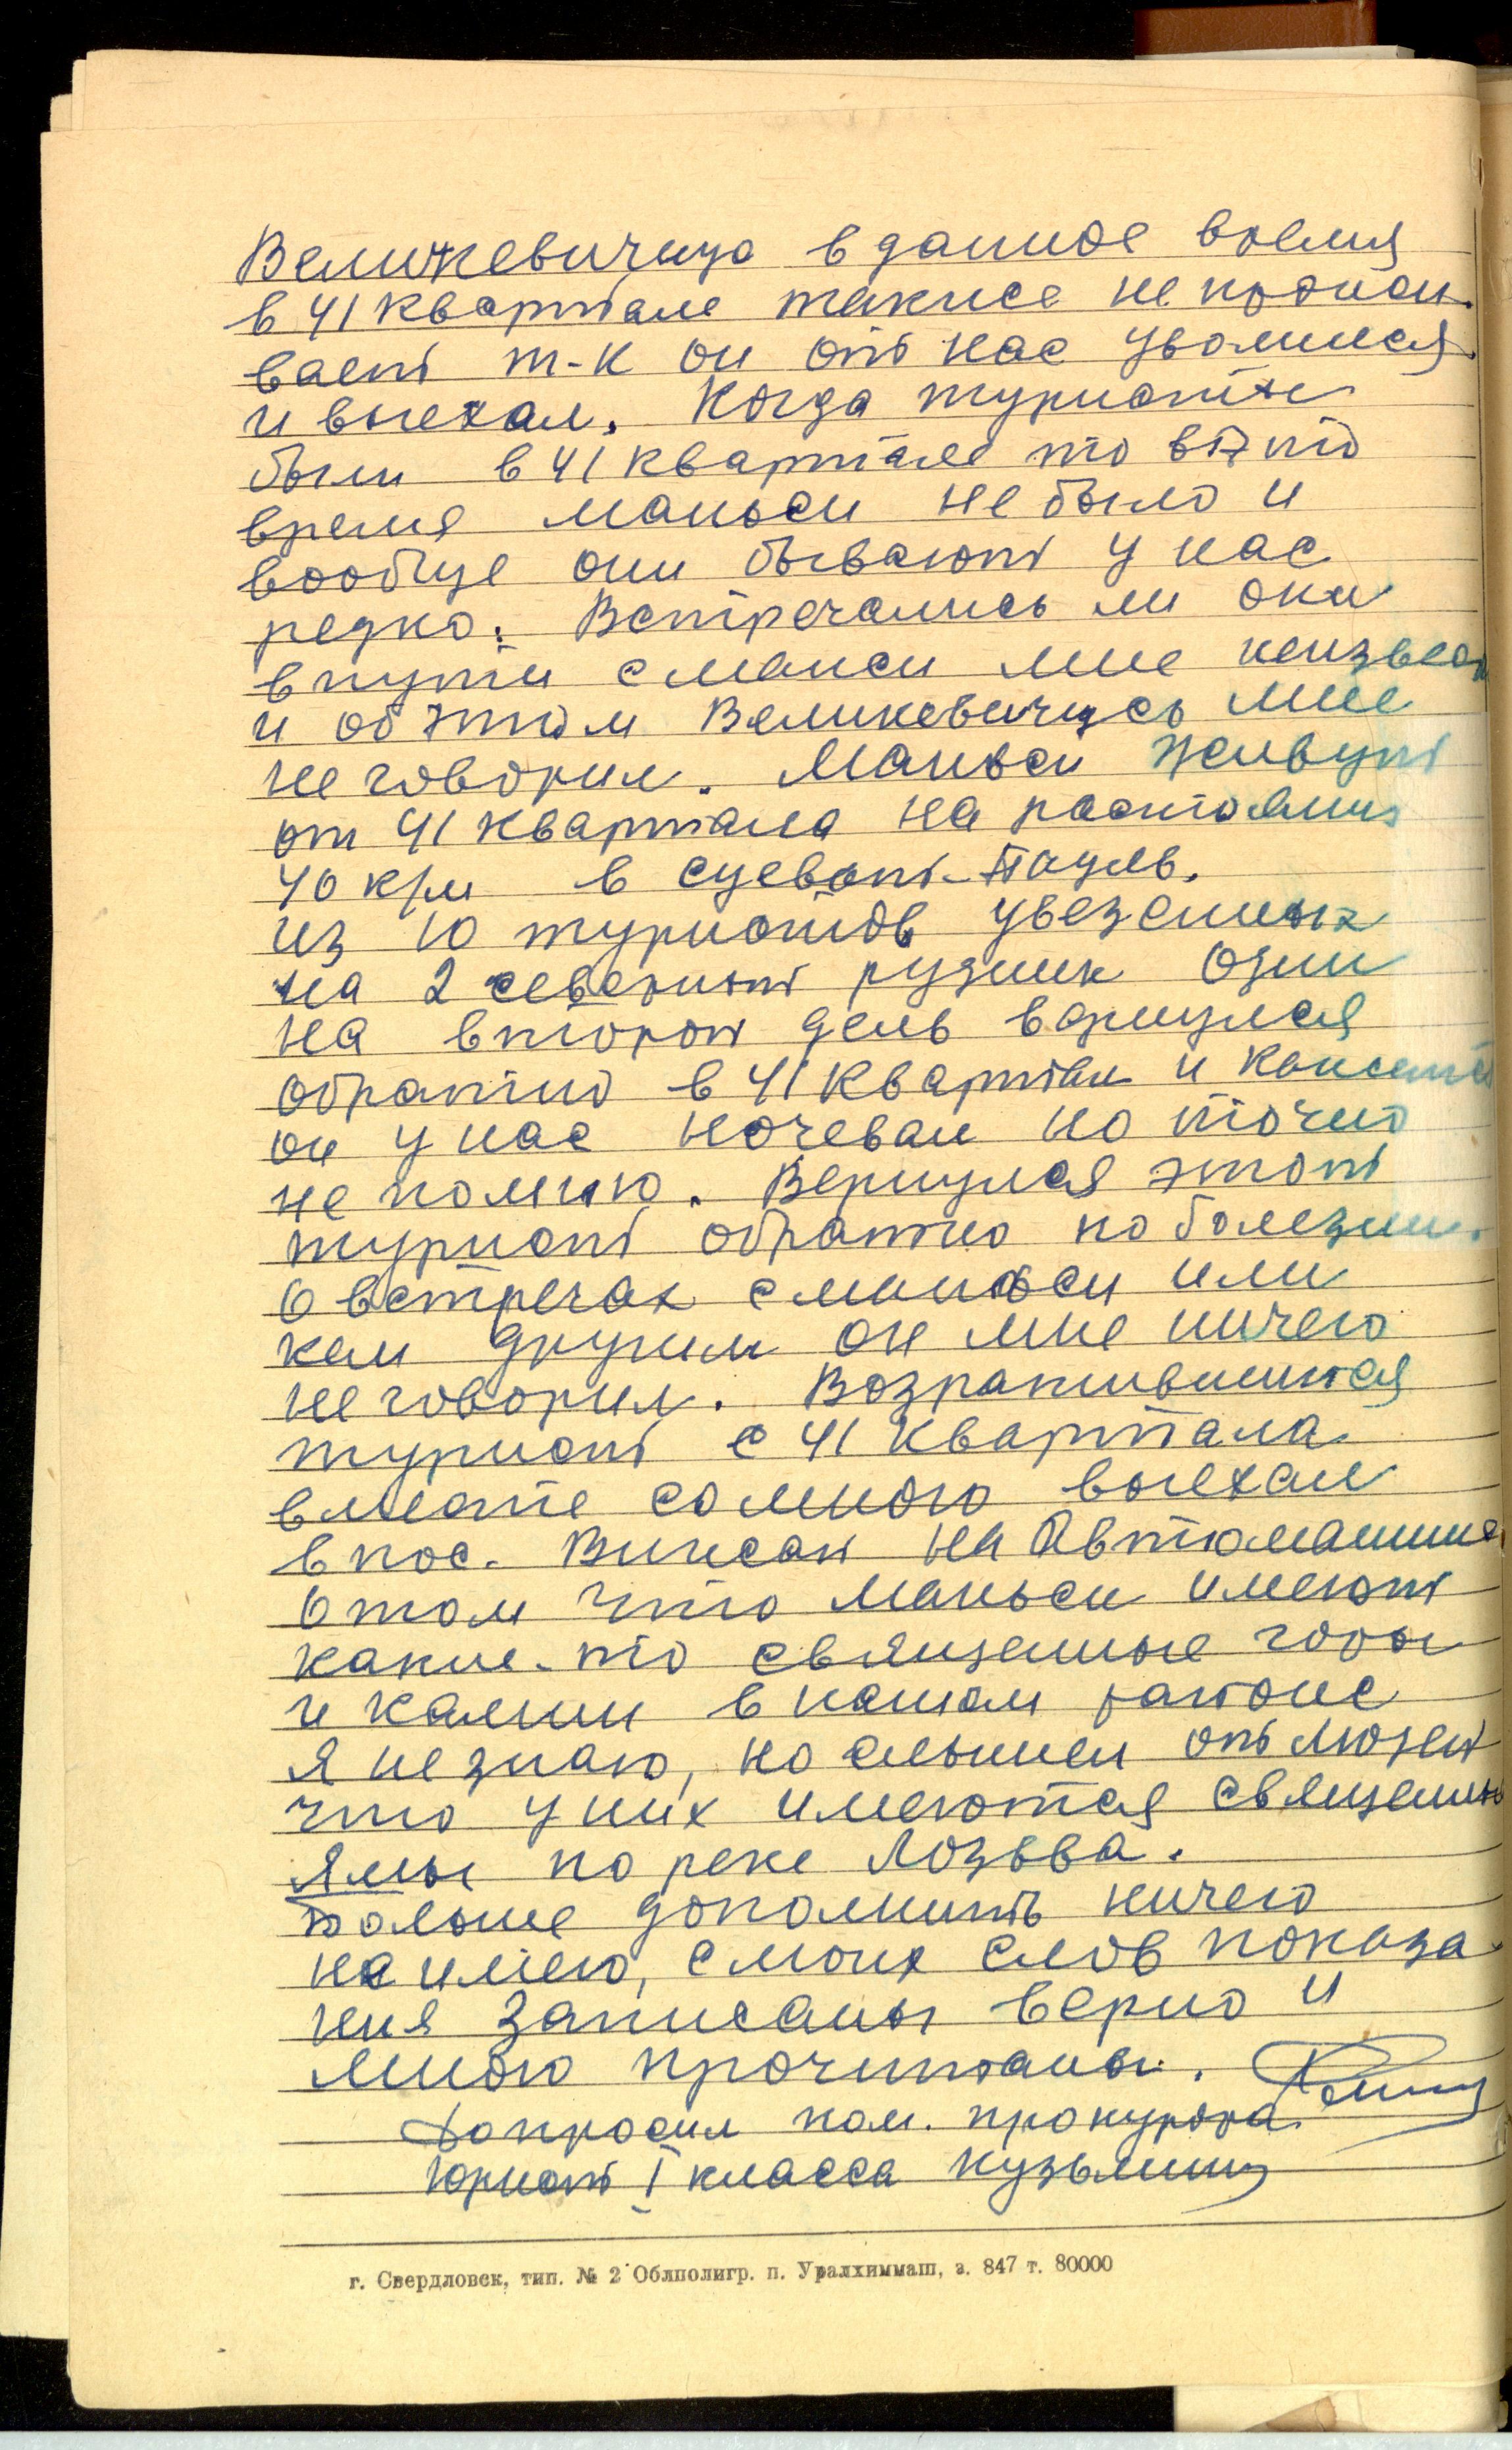 Велижевичуса в данное время
в 41 квартале также не прожи
вает т-к он от нас уволился
и выехал. Когда туристы
были в 41 квартале то в это
время маньси не было и
вообще они бывают у нас
редко. Встречались ли они
в пути с манси мне неизвест
и об этом Великевичусь мне
не говорил. Маньси живут
от 41 квартала на растоянии
40 к/м в суеват-Пауль.
из 10 туристов увезенных
на 2 северный рудник один
на второй день вернулся
обратно в 41 квартал и кажется
он у нас ночевал но точно
не помню. Вернулся этот
турист обратно по болезни.
О встречах с маньси или
кем другим он мне ничего
не говорил. Возратившийся
турист с 41 квартала
вместе со мною выехал
в пос. Вижай на Автомашине
о том что маньси имеют
какие-то священные горы
и камни в нашем районе
я не знаю, но слышал от людей
что у них имеются священны
Ямы по реке Лозьва.
больше дополнить ничего
не имею, с моих слов показа
ния записаны верно и
мною прочитаны.
Допросил пом. прокурора
Юрист I класса Кузьминых
г. Свердловск, тип. № 2 Облполигр. п. Уралхиммаш, з. 847 т. 80000